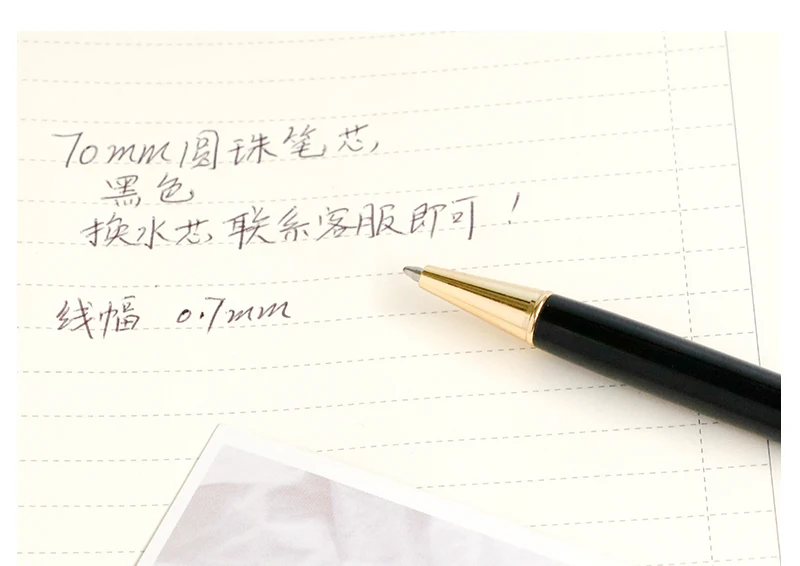 70mm圆珠笔芯,
黑色
换水芯,联系客服即可！
线幅 0.7mm